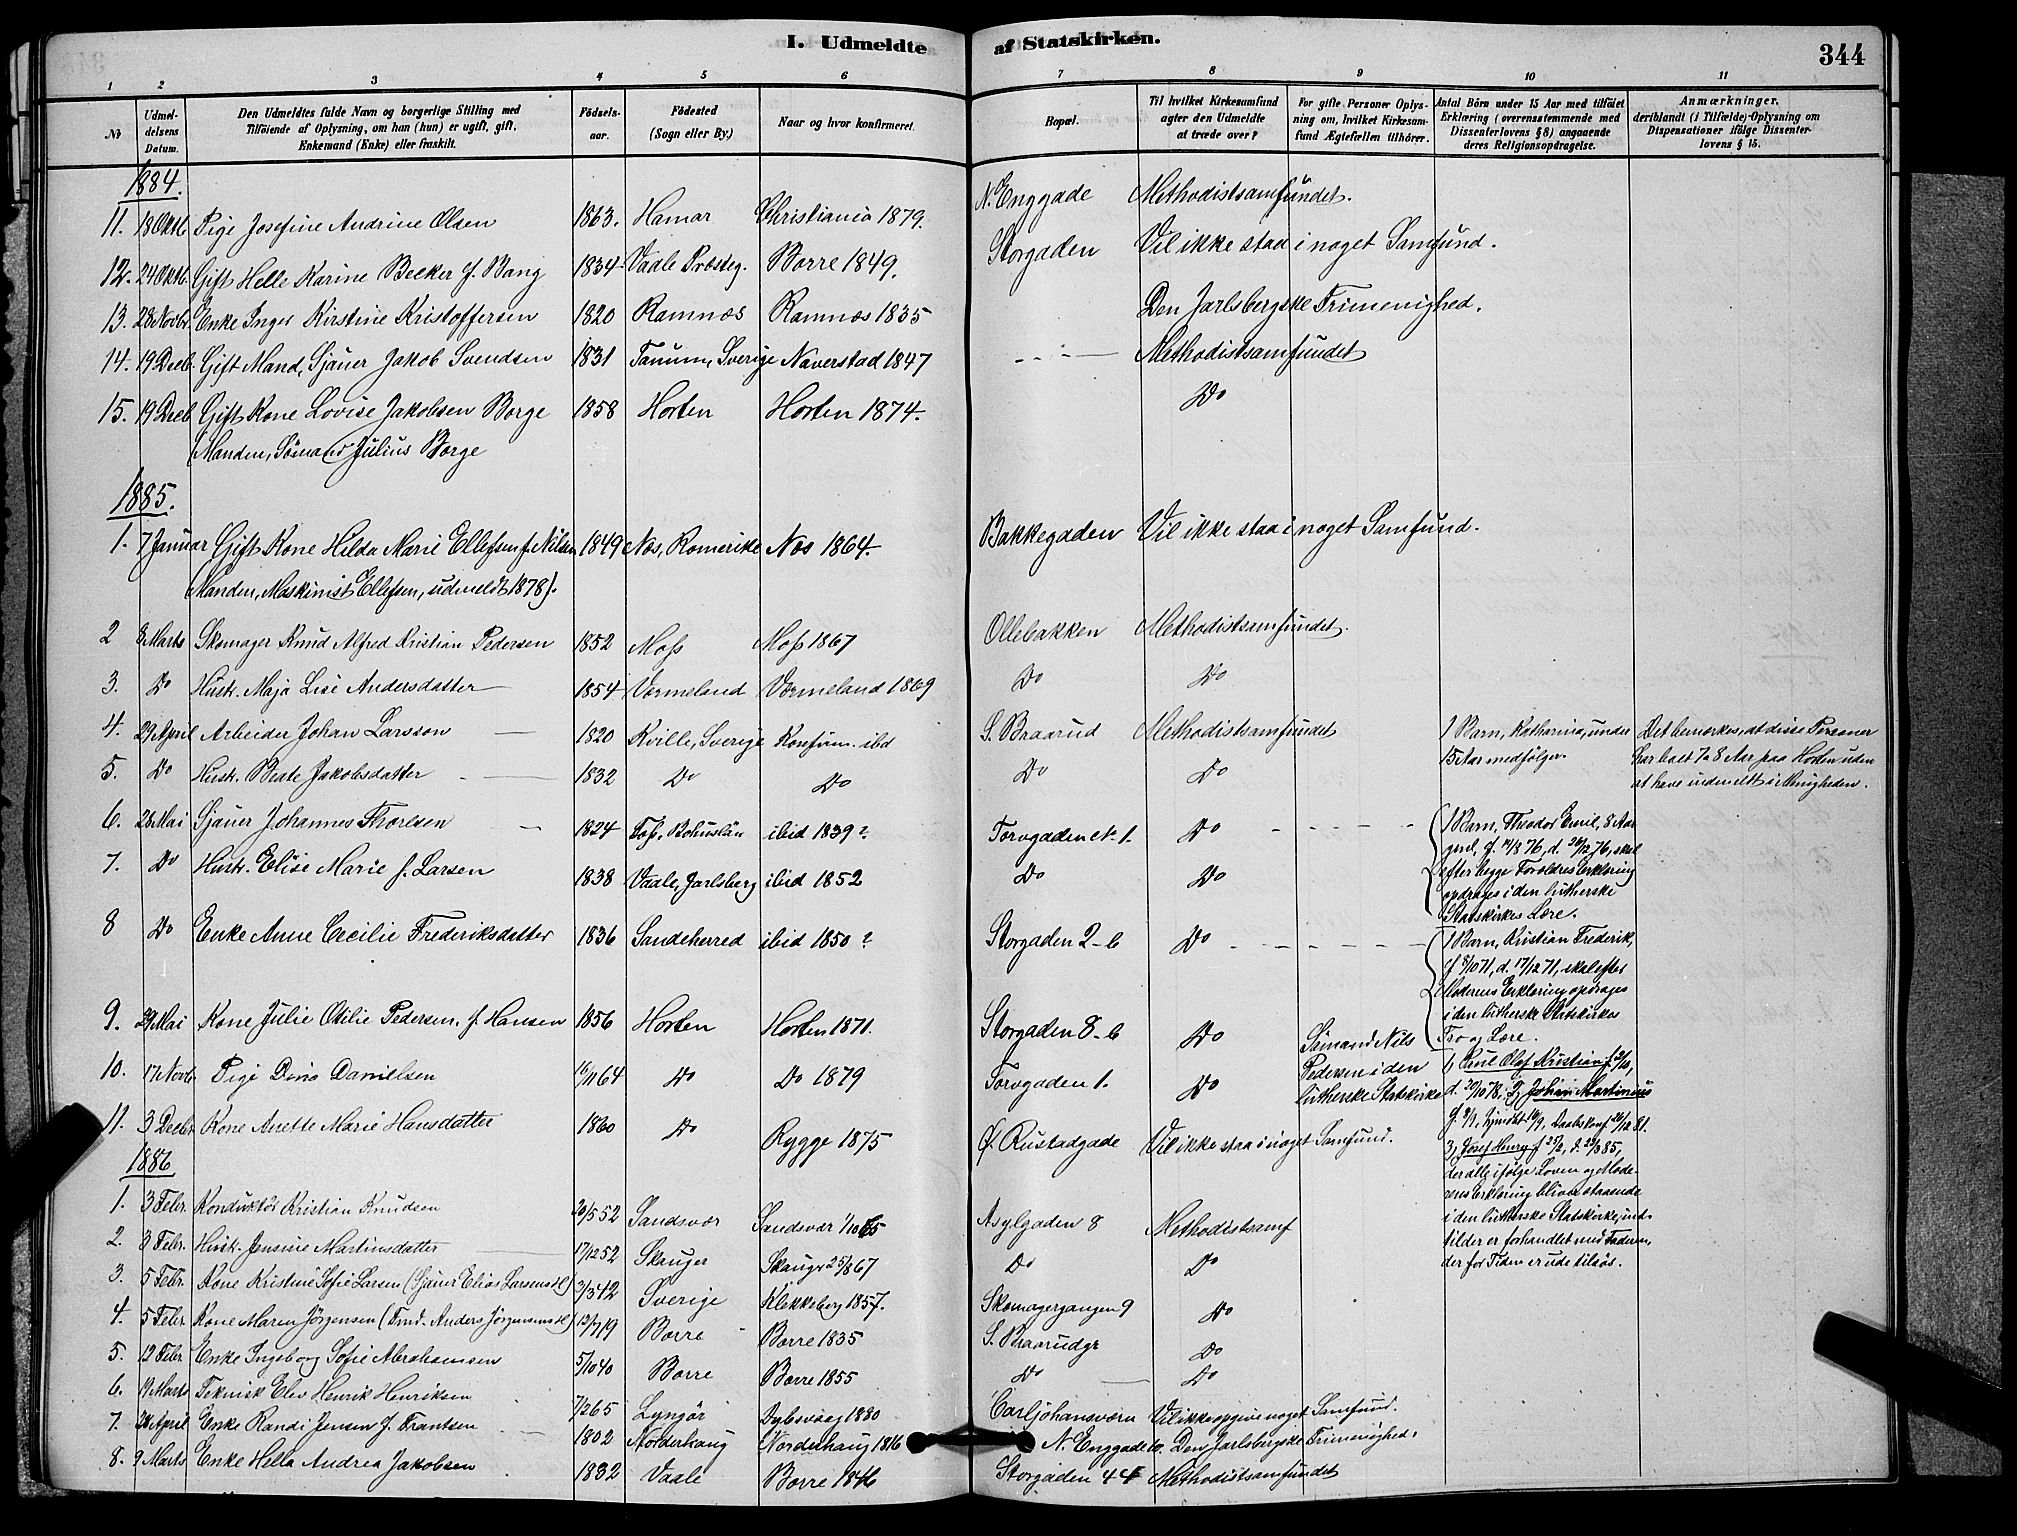 I. Udmeldte af Statskirken.
344
1 2 3 4 5 6 7 8 9 10 11
No
Udmeldelsens Datum.
Den Udmeldtes fulde Navn og borgerlige Stilling med Tilföiende af Oplysning, om han (hun) er ugift, gift, Enkemand (Enke) eller fraskilt.
Födselsaar.
Födested (Sogn eller By.)
Naar og hvor konfirmeret.
Bopæl.
Til hvilket Kirkesamfund agter den Udmeldte at træde over?
For gifte Personer Oplysning om, hvilket Kirkesamfund Ægtefællen tilhörer.
Antal Börn under 15 Aar med tilföiet Erklæring (overensstemmende med Dissenterlovens § 8) angaaende deres Religionsopdragelse.
Anmærkninger, deriblandt (i Tilfælde) Oplysning om Dispensationer ifölge Dissenterlovens § 15.
1884.
11. 18 Oktb. Pige Josefine Andrine Olsen 1863. Hamar Christiania 1879. N. Enggade Methodistsamfundet.
12. 24 Oktb. Gift Helle Karine Becker f. Bang 1834 Vaale Præsteg. Borre 1849. Storgaden Vil ikke staa i noget Samfund.
13. 28 Novbr. Enke Inger Kirstine Kristoffersen 1820 Ramnæs Ramnæs 1835 Den Jarlsbergske Frimenighed.
14. 19 Decb. Gift Mand, Sjauer Jakob Svendsen 1831 Tanum, Sverige Naverstad 1847 Methodistsamfundet
15. 19 Decb. Gift Kone Lovise Jakobsen Borge 1858 Horten Horten 1874. Do
(Manden, Sømand Julius Borge
1885.
1. 7 Januar Gift Kone Hilda Marie Ellefsen f. Nilsen 1849 Næs, Romerike Næs 1864. Bakkegaden Vil ikke staa i noget Samfund.
Manden, Maskinist Ellefsen, udmeldt 1878).
2 8 Marts Skomager Knud Alfred Kristian Pedersen 1852 Moss Moss 1867 Ollebakken Methodistsamfundet.
3. Do Hustr. Maja Lise Andersdatter 1854 Vermeland Vermeland 1869 Do Do
4. 29 April Arbeider Johan Larsson 1820 Kville, Sverige Konfirm. ibd S. Braarud Methodistsamfundet 1 Barn, Katharina, under 15 Aar medfølger. Det bemærkes, at disse Personer har boet 7 a 8 Aar paa Horten uden at have indmeldt i Menigheden.
5. Do Hustr. Beate Jakobsdatter 1832 Do Do Do Do
6. 28 Mai Sjauer Johannes Thorlsen 1824 Foss, Bohuslän ibid 1839? Torvgaden 1. Do 1 Barn, Theodor Emil, 8 Aar gml, f. 14/8 76, d. 26/12 76, skal efter begge Forældres Erklæring opdrages i den lutherske Statskirkes Lære.
7. Do Hustr. Elise Marie f. Larsen 1838 Vaale, Jarlsberg ibid 1852 Do Do
8 Do Enke Anne Cecilie Frederiksdatter 1836 Sandeherred ibid 1850? Storgaden 2-b Do 1 Barn, Kristian Frederik, f 8/10 71, d. 17/12 71, skal efter Moderens Erklæring opdrages i den lutherske Statskirkes Tro og Lære.
9. 29 Mai Kone Julie Otilie Pedersen f. Hansen 1856 Horten Horten 1871. Storgaden 8-b Do Sømand Nils Pedersen i den lutherske Statskirke 1, Emil Olaf Kristian f 2/10, d. 20/10 78, 2, Johan Martinius f. 9/9, hjmdbt 16/9, Daabskonf 26/12 81. 3, Josef Henry f 25/2, d. 29/3 85, der alle ifølge Loven og Moderens Erklæring bliver staaende i den lutherske Statskirke, indtilder er forhandlet med Faderen, der for Tiden er ude tilsøs.
10. 17 Novb. Pige Dina Danielsen 16/11 64 Do Do 1879 Torvgaden 1. Do
11. 3 Decbr. Kone Anette Marie Hansdatter 1860 Do Rygge 1875 Ø. Rustadgade Vil ikke staa i noget Samfund.
1886
1. 3 Febr. Konduktør Kristian Knudsen 20/5 52 Sandsvær Sandsvær 1/10 65 Asylgaden 8 Methodistsamf
2. 3 Febr. Hustr. Jensine Martinsdatter 17/12 52 Skauger Skauger 25/8 67 Do Do
3. 5 Febr. Kone Kristine Sofie Larsen (Sjauer Elias Larsens) 3/3 42 Sverige Klekkeberg 1857. Skomagergangen 9 Do
4. 5 Febr. Kone Maren Jørgensen (Tmd. Anders Jørgensens) 12/7 19 Borre Borre 1835 S. Braarudgr Do
5. 12 Febr. Enke Ingeborg Sofie Abrahamsen 5/10 40 Borre Borre 1855 Do Do
6. 19 Marts Teknisk Elev Henrik Henriksen 7/2 65 Lyngør Dybvaag 1880 Carljohansværn Vil ikke opgive noget Samfund.
7. 28 April Enke Randi Jensen f. Frantsen 1802 Norderhaug Norderhaug 1816 N. Enggade Den Jarlsbergske Frimenighed.
8. 9 Marts Enke Hella Andrea Jakobsen 1832 Vaale Borre 1846 Storgaden 44 Methodistsamfundet